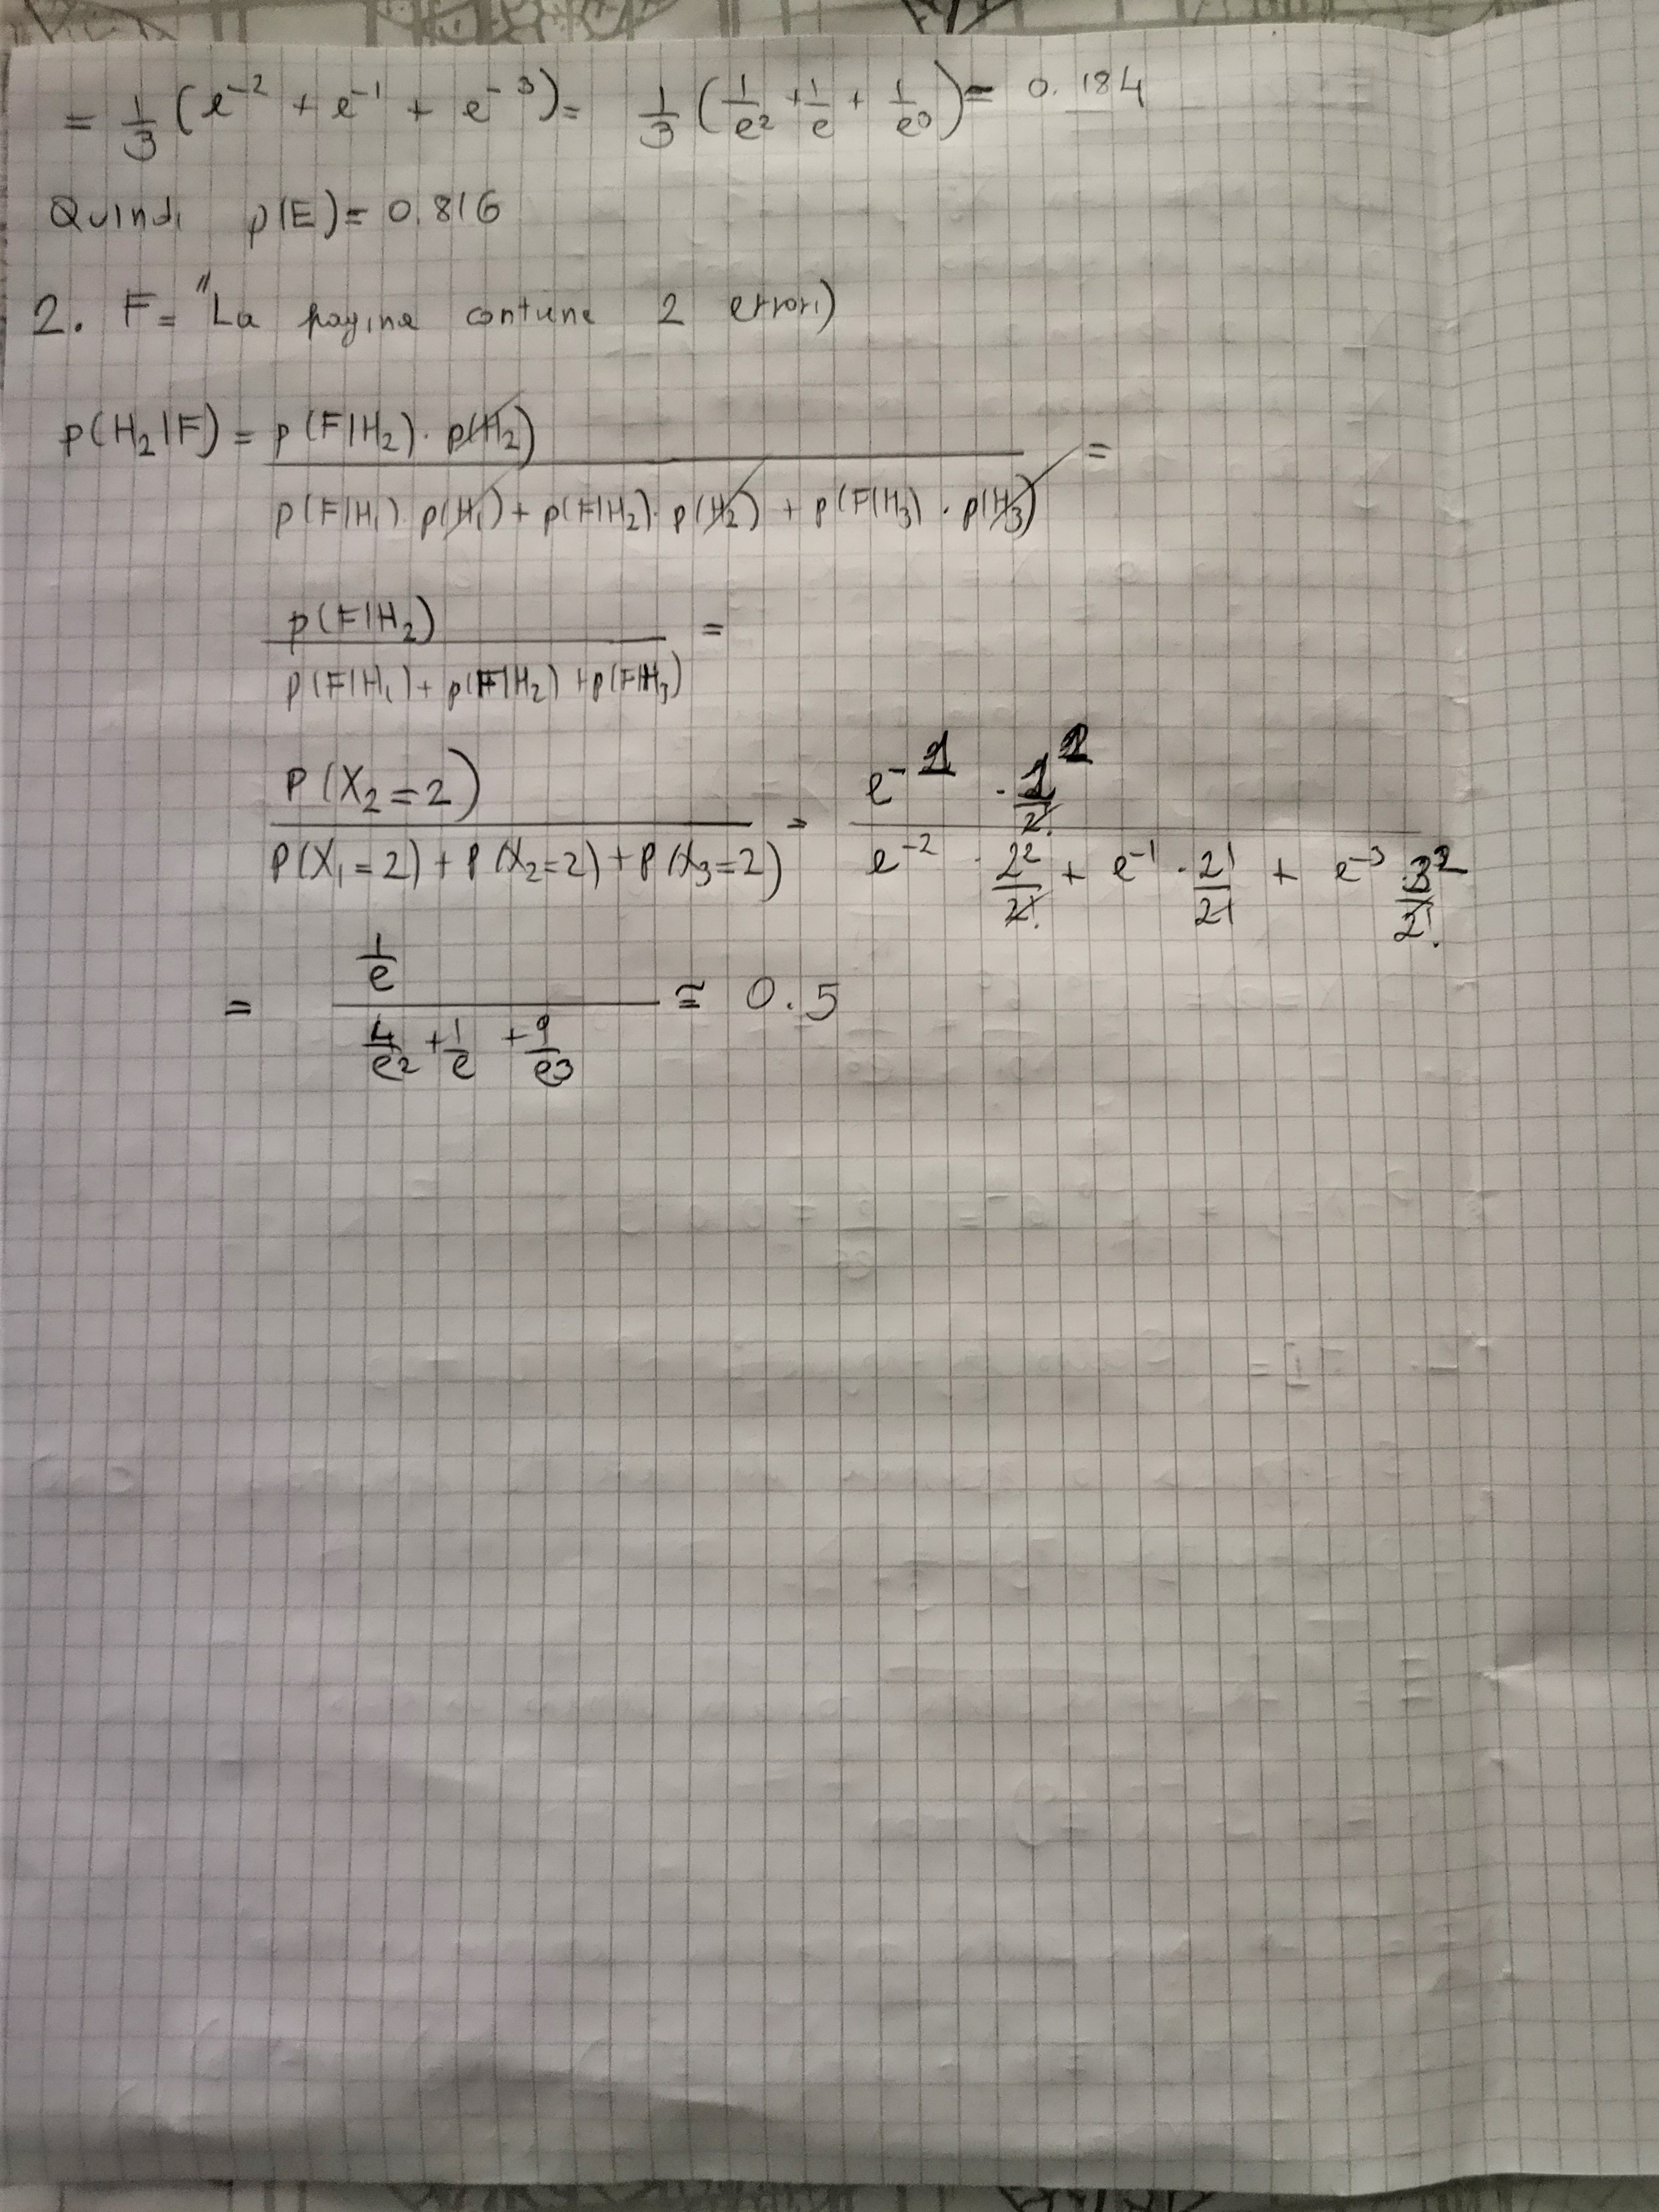 = 1/3 (e⁻² + e⁻¹ + e⁻³) = 1/3 (1/e² + 1/e + 1/e³) = 0.184
Quindi p(E) = 0.816
2. F = "La pagina contiene 2 errori)
p(H₂|F) = p(F|H₂) · p(H₂) / p(F|H₁) · p(H₁) + p(F|H₂) · p(H₂) + p(F|H₃) · p(H₃) =
p(F|H₂) / p(F|H₁) + p(F|H₂) + p(F|H₃) =
P(X₂=2) / P(X₁=2) + P(X₂=2) + P(X₃=2) = e⁻¹ · 1²/2! / e⁻² · 2²/2! + e⁻¹ · 2!/2! + e⁻³ · 3²/2!
= 1/e / 4/e² + 1/e + 9/e³ ≅ 0.5